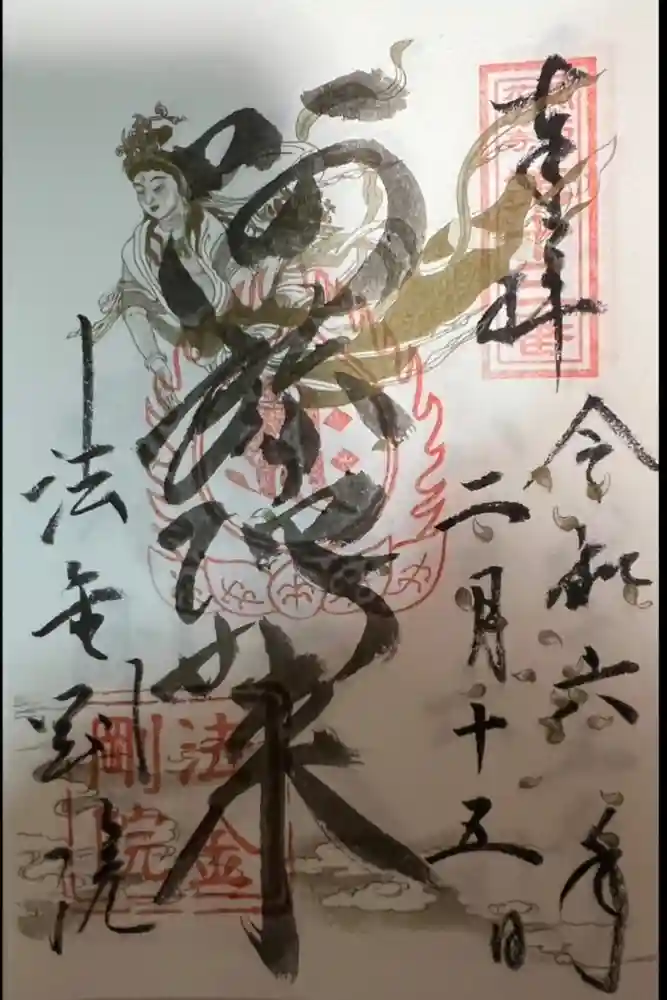 奉拝
令和六年
二月十五日
阿弥陀如来
法金剛院
法金
剛院